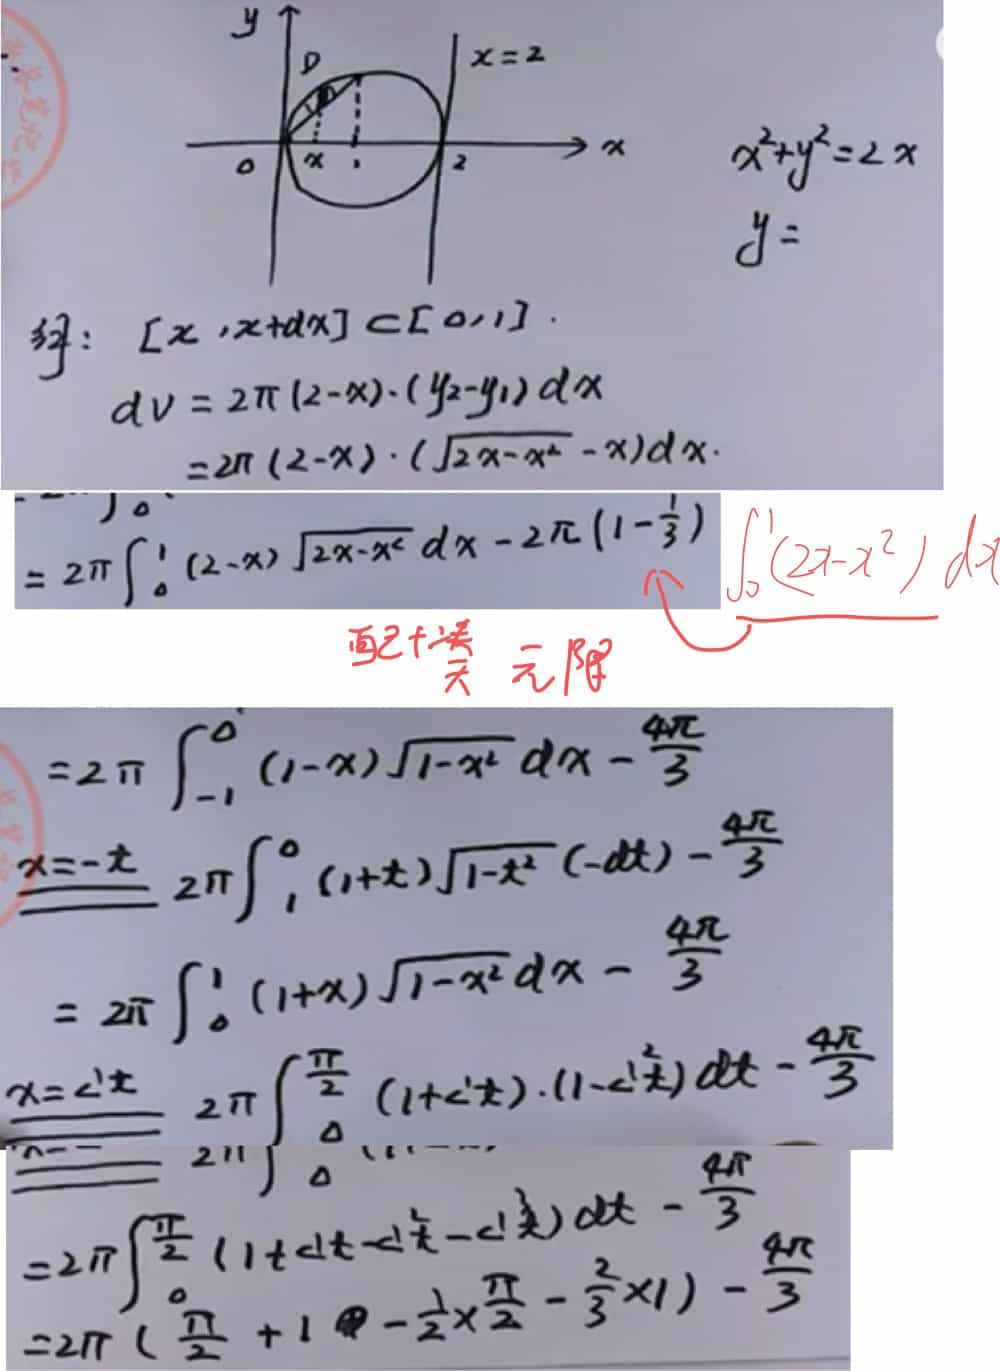 y
D
x=2
0 x 1 2 x
x²+y²=2x
y=
解: [x,x+dx]⊂[0,1].
dV=2π(2-x)·(y₂-y₁)dx
=2π(2-x)·(√(2x-x²)-x)dx.
=2π∫₀¹(2-x)√(2x-x²)dx-2π(1-1/3)
∫₀¹(2x-x²)dx
配+换元 元限
=2π∫₋₁⁰(1-x)√(1-x²)dx-4π/3
x=-t 2π∫₁⁰(1+t)√(1-t²)(-dt)-4π/3
=2π∫₀¹(1+x)√(1-x²)dx-4π/3
x=sin t 2π∫₀^(π/2)(1+sin t)·(1-sin²t)dt-4π/3
=2π∫₀^(π/2)(1+sin t-sin²t-sin³t)dt-4π/3
=2π(π/2+1-1/2×π/2-2/3×1)-4π/3